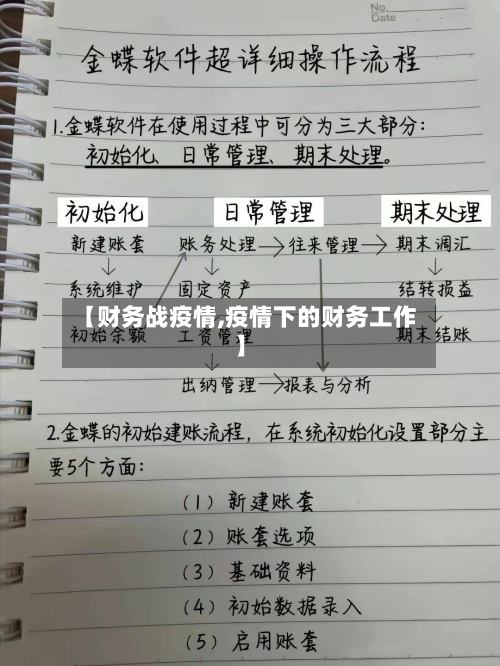 No.
Date
金蝶软件超详细操作流程
1.金蝶软件在使用过程中可分为三大部分:
初始化、日常管理、期末处理。
初始化 日常管理 期末处理
新建账套 账务处理 往来管理 期末调汇
系统维护 固定资产 结转损益
【财务战疫情,疫情下的财务工作
】
初始余额 工资管理 期末结账
出纳管理 报表与分析
2.金蝶的初始建账流程,在系统初始化设置部分主
要5个方面:
(1)新建账套
(2)账套选项
(3)基础资料
(4)初始数据录入
(5)启用账套